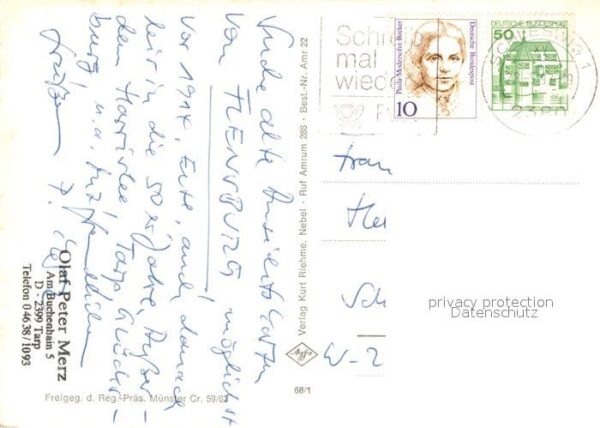 Suche alte Ansichtskarten
von FLENSBURG möglichst
vor 1914, Evtl. auch danach
bis in die 50er Jahre, Außer-
dem Harrislee, Tarp, Glücks-
burg u.a. Mit freundlichen
Grüßen
Olaf Peter Merz
Am Buchenhain 5
D - 2399 Tarp
Telefon 0 46 38 / 10 93
Freigeg. d. Reg.-Präs. Münster Cr. 59/62
68/1
Verlag Kurt Riehme, Nebel · Ruf Amrum 288 · Best.-Nr. Amr 22
mal
wieder
Paula Modersohn-Becker
Deutsche Bundespost
10
DEUTSCHE BUNDESPOST
50
SCHLESWIG 1
2380
Frau
W-2
privacy protection
Datenschutz